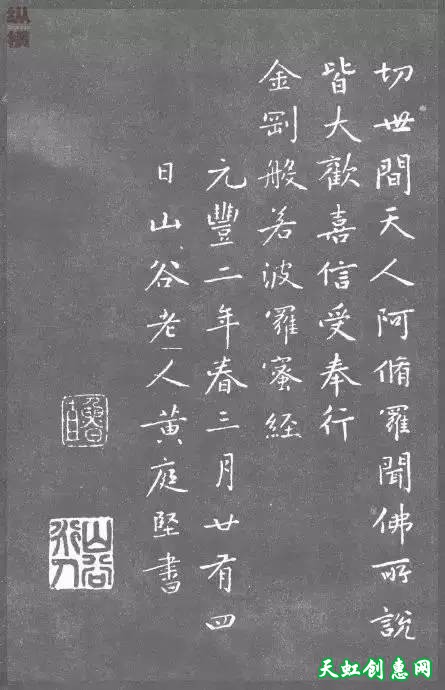 纵横
切世間天人阿脩羅聞佛所說
皆大歡喜信受奉行
金剛般若波羅蜜經
元豐二年春三月廿有四
日山谷老人黃庭堅書
天虹创惠网